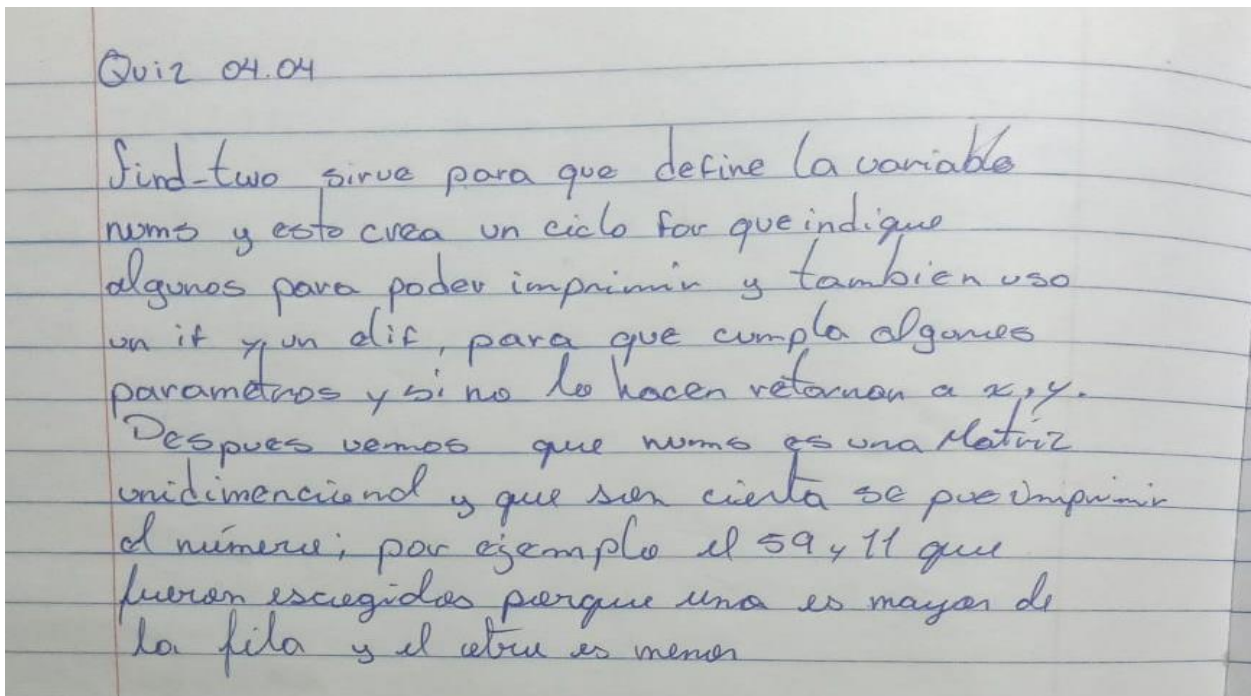 Quiz 04.04
find-two sirve para que define la variable
nums y esto crea un ciclo for que indique
algunos para poder imprimir y tambien uso
un if y un elif, para que cumpla algunos
parametros y si no lo hacen retornan a x,y.
Despues vemos que nums es una Matriz
unidimencional y que sien cierta se pue imprimir
el número; por ejemplo el 59 y 11 que
fueron escogidos porque uno es mayor de
la fila y el otro es menor